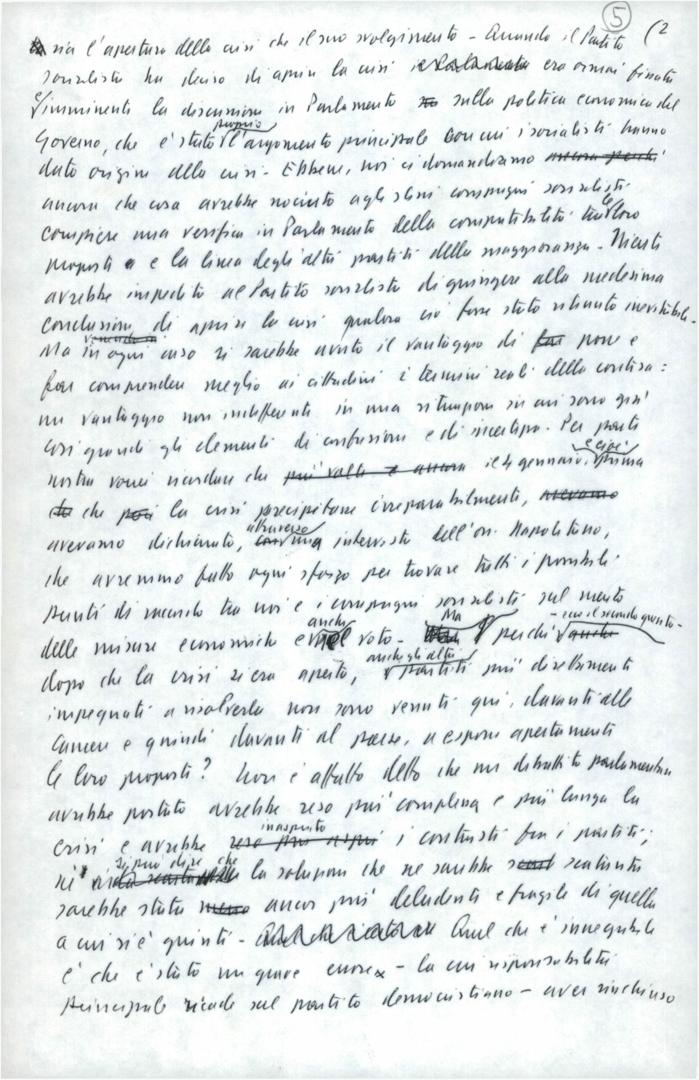 5 (2
sia l'apertura della crisi che il suo svolgimento - Quando il Partito
socialista ha deciso di aprire la crisi era ormai fissata
e imminente la discussione in Parlamento sulla politica economica del
proprio
Governo, che è stato l'argomento principale con cui i socialisti hanno
dato origine alla crisi - Ebbene, noi ci domandiamo
ancora che cosa avrebbe nociuto agli stessi compagni socialisti
compiere una verifica in Parlamento della compatibilità tra le loro
proposte e la linea degli altri partiti della maggioranza - Niente
avrebbe impedito al Partito socialista di giungere alla medesima
conclusione, di aprire la crisi qualora ciò fosse stato ritenuto inevitabile -
Ma in ogni caso si sarebbe avuto il vantaggio di porre e
far comprendere meglio ai cittadini i termini reali della contesa:
un vantaggio non indifferente in una situazione in cui sono già
così grandi gli elementi di confusione e di incertezza. Per parte
e cioè
nostra vorrei ricordare che più volte e ancora il 4 gennaio, prima
che la crisi precipitasse irreparabilmente, avevamo
attraverso
avevamo dichiarato, con una intervista dell'on. Napolitano,
che avremmo fatto ogni sforzo per trovare tutti i possibili
punti di incontro tra noi e i compagni socialisti sul merito
anche Ma - ecco il secondo quesito -
delle misure economiche e nel voto - perché anche
anche gli altri
dopo che la crisi si era aperta, i partiti più direttamente
impegnati a risolverla non sono venuti qui, davanti alle
Camere e quindi davanti al paese, a esporre apertamente
le loro proposte? Non è affatto detto che un dibattito parlamentare
avrebbe portato avrebbe reso più complessa e più lunga la
inasprito
crisi e avrebbe reso più aspri i contrasti fra i partiti;
si può dire che
né la soluzione che ne sarebbe scaturita
sarebbe stata meno ancor più deludente e fragile di quella
a cui si è giunti - Quel che è innegabile
è che è stato un grave errore - la cui responsabilità
principale ricade sul partito democristiano - aver rinchiuso